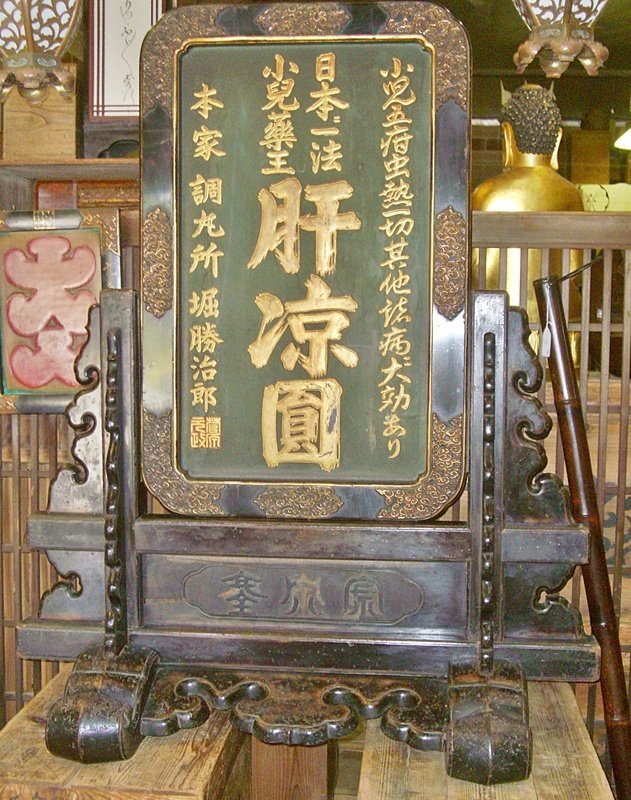 小児五疳虫熱一切其他諸病ニ大効あり
日本一法
小兒藥王
肝凉圓
本家 調丸所 堀勝治郎